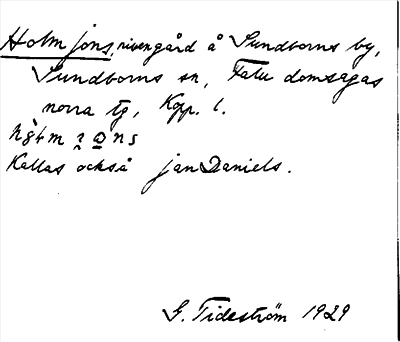 Holm jons, rivengård å Sundborns by,
Sundborns sn, Falu domsagas
norra tg, Kopp. l.
Kallas också jan Daniels.
G. Tideström 1929